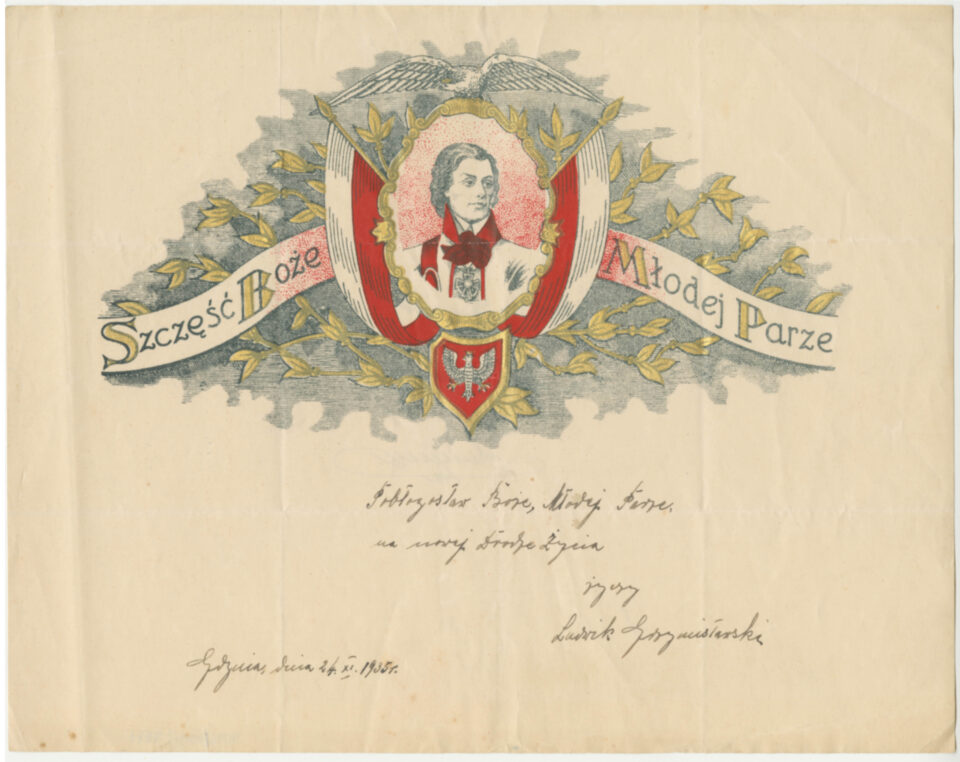 Szczęść Boże Młodej Parze
Pobłogosław Boże, Młodej Parze.
na nowej Drodze Życia
życzy
Ludwik
Gdynia, dnia 24. XI. 1935r.